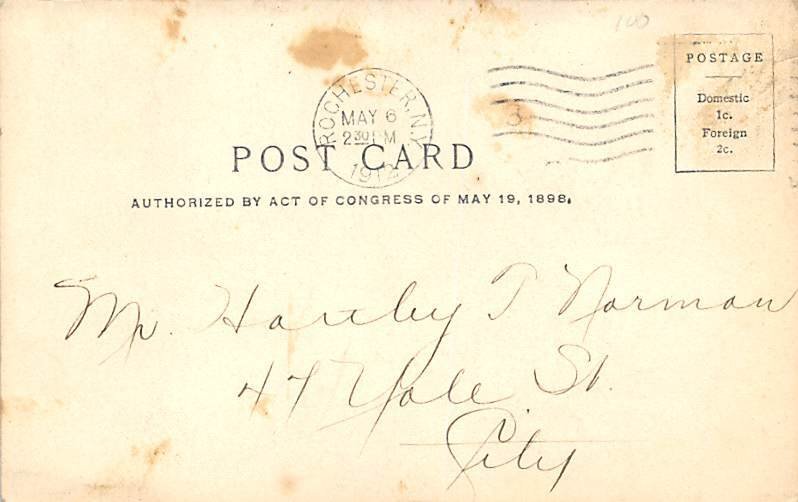 100
POSTAGE
Domestic
1c.
Foreign
2c.
ROCHESTER, N.Y.
MAY 6
2 30 PM
1912
3
POST CARD
AUTHORIZED BY ACT OF CONGRESS OF MAY 19, 1898.
Mr. Hartley T Norman
47 Yale St.
City